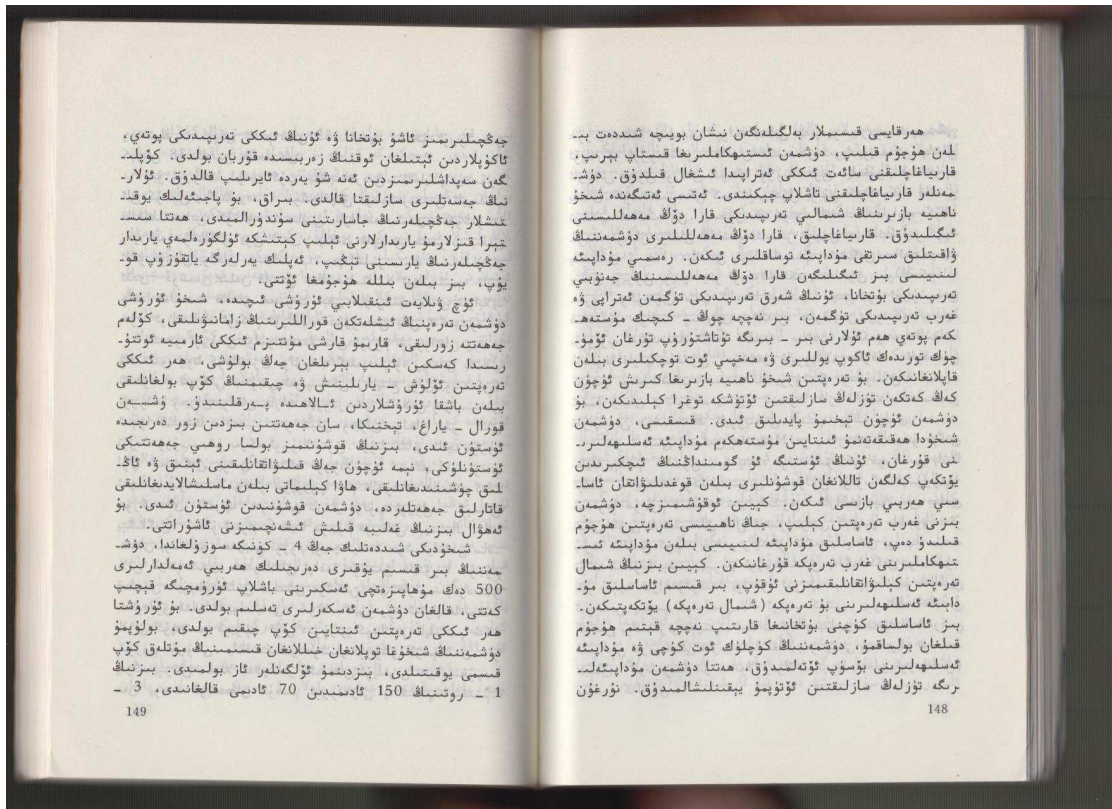 ھەرقايسى قىسىملار بەلگىلەنگەن نىشان بويىچە شىددەت بى-
لەن ھۇجۇم قىلىپ، دۈشمەن ئىستىھكاملىرىغا قىستاپ بېرىپ،
قارىياغاچلىقنى سائەت ئىككى ئەتراپىدا ئىشغال قىلدۇق. دۈش-
مەنلەر قارىياغاچلىقنى تاشلاپ چېكىندى. ئەتىسى ئەتىگەندە شىخۇ
ناھىيە بازىرىنىڭ شىمالىي تەرىپىدىكى قارا دۆڭ مەھەللىسىنى
ئىگىلىدۇق. قارىياغاچلىق، قارا دۆڭ مەھەللىلىرى دۈشمەننىڭ
ۋاقىتلىق سىرتقى مۇداپىئە توساقلىرى ئىكەن. رەسمىي مۇداپىئە
لىنىيىسى بىز ئىگىلىگەن قارا دۆڭ مەھەللىسىنىڭ جەنۇبىي
تەرىپىدىكى بۇتخانا، ئۇنىڭ شەرق تەرىپىدىكى تۈگمەن ئەتراپى ۋە
غەرب تەرىپىدىكى تۈگمەن، بىر نەچچە چوڭ - كىچىك مۇستەھ-
كەم پوتەي ھەم ئۇلارنى بىر - بىرىگە تۇتاشتۇرۇپ تۇرغان ئۆمۈ-
چۈك تورىدەك ئاكوپ يوللىرى ۋە مەخپىي ئوت نوچكىلىرى بىلەن
قاپلانغانىكەن. بۇ تەرەپتىن شىخۇ ناھىيە بازىرىغا كىرىش ئۈچۈن
كەڭ كەتكەن تۈزلەڭ سازلىقتىن ئۆتۈشكە توغرا كېلىدىكەن، بۇ
دۈشمەن ئۈچۈن تېخىمۇ پايدىلىق ئىدى. قىسقىسى، دۈشمەن
شىخۇدا ھەقىقەتەنمۇ ئىنتايىن مۇستەھكەم مۇداپىئە ئەسلىھەلىرى-
نى قۇرغان، ئۇنىڭ ئۈستىگە ئۇ گومىنداڭنىڭ ئىچكىرىدىن
يۆتكەپ كەلگەن تاللانغان قوشۇنلىرى بىلەن قوغدىلىۋاتقان ئاسا-
سىي ھەربىي بازىسى ئىكەن. كېيىن ئوقۇشىمىزچە، دۈشمەن
بىزنى غەرب تەرەپتىن كېلىپ، جىڭ ناھىيىسى تەرەپتىن ھۇجۇم
قىلىدۇ دەپ، ئاساسلىق مۇداپىئە لىنىيىسى بىلەن مۇداپىئە ئىس-
تىھكاملىرىنى غەرب تەرەپكە قۇرغانىكەن. كېيىن بىزنىڭ شىمال
تەرەپتىن كېلىۋاتقانلىقىمىزنى ئۇقۇپ، بىر قىسىم ئاساسلىق مۇ-
داپىئە ئەسلىھەلىرىنى بۇ تەرەپكە (شىمال تەرەپكە) يۆتكەپتىكەن.
بىز ئاساسلىق كۈچنى بۇتخانىغا قارىتىپ نەچچە قېتىم ھۇجۇم
قىلغان بولساقمۇ، دۈشمەننىڭ كۈچلۈك ئوت كۈچى ۋە مۇداپىئە
ئەسلىھەلىرىنى بۆسۈپ ئۆتەلمىدۇق، ھەتتا دۈشمەن مۇداپىئەلى-
رىگە تۈزلەڭ سازلىقتىن ئۆتۈپمۇ يېقىنلىشالمىدۇق. نۇرغۇن
148
جەڭچىلىرىمىز ئاشۇ بۇتخانا ۋە ئۇنىڭ ئىككى تەرىپىدىكى پوتەي،
ئاكوپلاردىن ئېتىلغان ئوقنىڭ زەربىسىدە قۇربان بولدى. كۆپلى-
گەن سەپداشلىرىمىزدىن ئەنە شۇ يەردە ئايرىلىپ قالدۇق. ئۇلار-
نىڭ جەسەتلىرى سازلىقتا قالدى. بىراق، بۇ پاجىئەلىك يوقى-
تىشلار جەڭچىلەرنىڭ جاسارىتىنى سۇندۇرالمىدى، ھەتتا سىس-
تېرا قىزلارمۇ يارىدارلارنى ئېلىپ كېتىشكە ئۈلگۈرەلمەي يارىدار
جەڭچىلەرنىڭ يارىسىنى تېڭىپ، ئەپلىك يەرلەرگە ياتقۇزۇپ قو-
يۇپ، بىز بىلەن بىللە ھۇجۇمغا ئۆتتى.
ئۈچ ۋىلايەت ئىنقىلابىي ئۇرۇشى ئىچىدە، شىخۇ ئۇرۇشى
دۈشمەن تەرەپنىڭ ئىشلەتكەن قوراللىرىنىڭ زامانىۋىلىقى، كۆلەم
جەھەتتە زورلىقى، قارىمۇ قارشى مۇنتىزىم ئىككى ئارمىيە ئوتتۇ-
رىسىدا كەسكىن ئېلىپ بېرىلغان جەڭ بولۇشى، ھەر ئىككى
تەرەپتىن ئۆلۈش - يارىلىنىش ۋە چىقىمنىڭ كۆپ بولغانلىقى
بىلەن باشقا ئۇرۇشلاردىن ئالاھىدە پەرقلىنىدۇ. دۈشمەن
قورال - ياراغ، تېخنىكا، سان جەھەتتىن بىزدىن زور دەرىجىدە
ئۈستۈن ئىدى، بىزنىڭ قوشۇنىمىز بولسا روھىي جەھەتتىكى
ئۈستۈنلۈكى، نېمە ئۈچۈن جەڭ قىلىۋاتقانلىقىنى ئېنىق ۋە ئاڭ-
لىق چۈشىنىدىغانلىقى، ھاۋا كېلىماتى بىلەن ماسلىشالايدىغانلىقى
قاتارلىق جەھەتلەردە، دۈشمەن قوشۇنىدىن ئۈستۈن ئىدى. بۇ
ئەھۋال بىزنىڭ غەلىبە قىلىش ئىشەنچىمىزنى ئاشۇراتتى.
شىخۇدىكى شىددەتلىك جەڭ 4 - كۈنىگە سوزۇلغاندا، دۈش-
مەننىڭ بىر قىسىم يۇقىرى دەرىجىلىك ھەربىي ئەمەلدارلىرى
500 دەك مۇھاپىزەتچى ئەسكىرىنى باشلاپ ئۈرۈمچىگە قېچىپ
كەتتى، قالغان دۈشمەن ئەسكەرلىرى تەسلىم بولدى. بۇ ئۇرۇشتا
ھەر ئىككى تەرەپتىن ئىنتايىن كۆپ چىقىم بولدى، بولۇپمۇ
دۈشمەننىڭ شىخۇغا توپلانغان خىللانغان قىسىمىنىڭ مۇتلەق كۆپ
قىسمى يوقىتىلدى، بىزدىنمۇ ئۆلگەنلەر ئاز بولمىدى. بىزنىڭ
1 - روتىنىڭ 150 ئادىمىدىن 70 ئادىمى قالغانىدى، 3 -
149